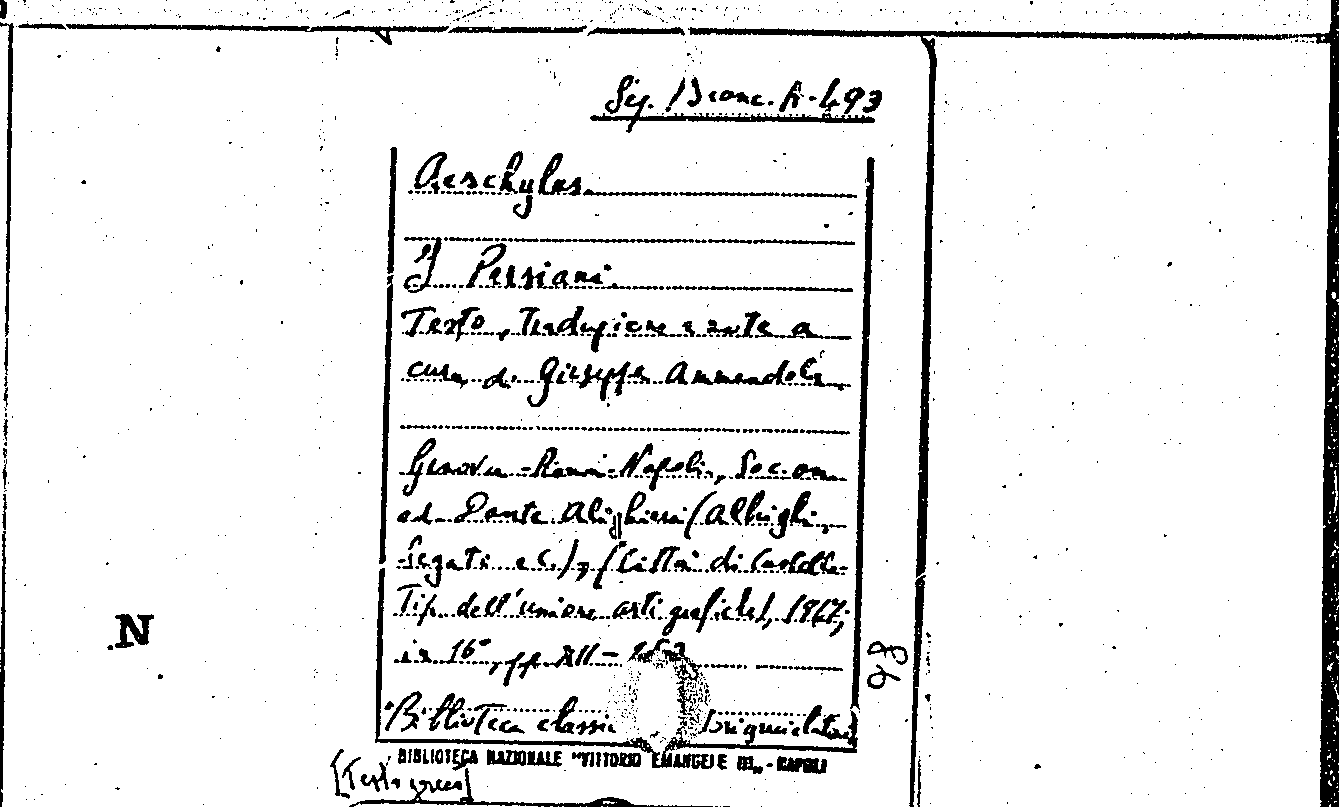 Sig. Branc. A-493
Aeschylos.
I Persiani.
Testo, traduzione e note a
cura di Giuseppe Ammendola,
Genova-Roma-Napoli, Soc. an.
ed. Dante Alighieri (Albrighi,
Segati e C.), (Città di Castello-
Tip. dell'unione arti grafiche),
in 16°, pp. XII-
Biblioteca classi
N
98
BIBLIOTECA NAZIONALE "VITTORIO EMANUELE III" - NAPOLI
[Testo greco]